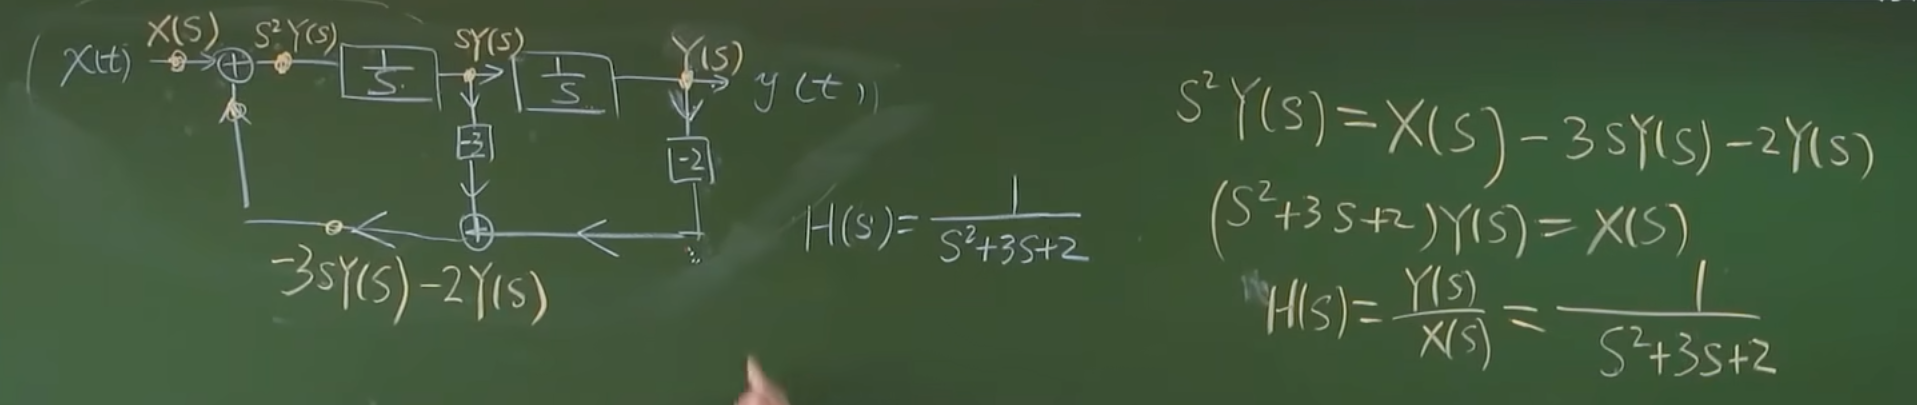 X(S) S²Y(S) SY(S) Y(S)
x(t) + 1/S 1/S y(t)
-3 -2
+
-3SY(S)-2Y(S)
H(S)=1/(S²+3S+2)
S²Y(S)=X(S)-3SY(S)-2Y(S)
(S²+3S+2)Y(S)=X(S)
H(S)=Y(S)/X(S)=1/(S²+3S+2)